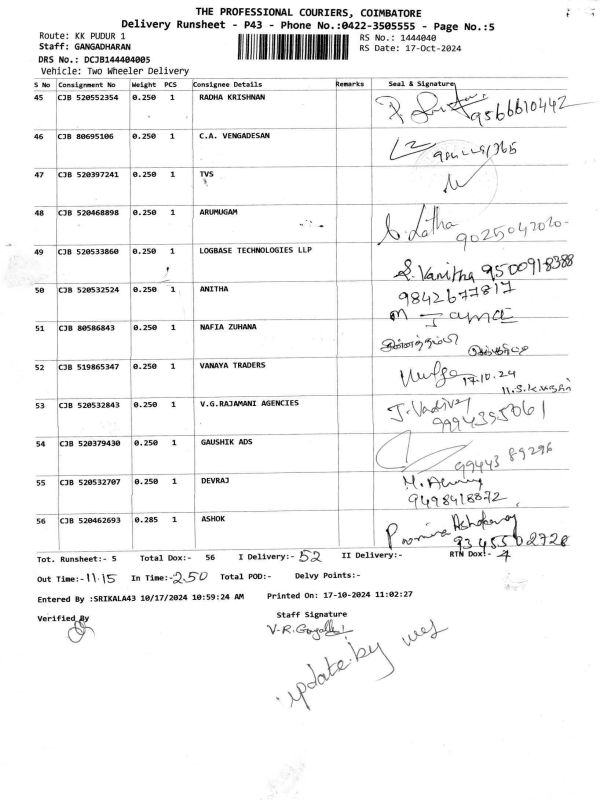 THE PROFESSIONAL COURIERS, COIMBATORE
Delivery Runsheet - P43 - Phone No.:0422-3505555 - Page No.:5
Route: KK PUDUR 1 RS No.: 1444040
Staff: GANGADHARAN RS Date: 17-Oct-2024
DRS No.: DCJB144404005
Vehicle: Two Wheeler Delivery
S No Consignment No Weight PCS Consignee Details Remarks Seal & Signature
45 CJB 520552354 0.250 1 RADHA KRISHNAN 9566610442
46 CJB 80695106 0.250 1 C.A. VENGADESAN
47 CJB 520397241 0.250 1 TVS
48 CJB 520468898 0.250 1 ARUMUGAM Latha
49 CJB 520533860 0.250 1 LOGBASE TECHNOLOGIES LLP S. Vanitha 9500918388
50 CJB 520532524 0.250 1 ANITHA 9842677817
51 CJB 80586843 0.250 1 NAFIA ZUHANA
52 CJB 519865347 0.250 1 VANAYA TRADERS 17.10.24
53 CJB 520532843 0.250 1 V.G.RAJAMANI AGENCIES 9994395061
54 CJB 520379430 0.250 1 GAUSHIK ADS 99443 89296
55 CJB 520532707 0.250 1 DEVRAJ 9498418872
56 CJB 520462693 0.285 1 ASHOK 9345502728
Tot. Runsheet:- 5 Total Dox:- 56 I Delivery:- 52 II Delivery:- RTN Dox:- 4
Out Time:- 11.15 In Time:- 2.50 Total POD:- Delvy Points:-
Entered By :SRIKALA43 10/17/2024 10:59:24 AM Printed On: 17-10-2024 11:02:27
Verified By Staff Signature
update by